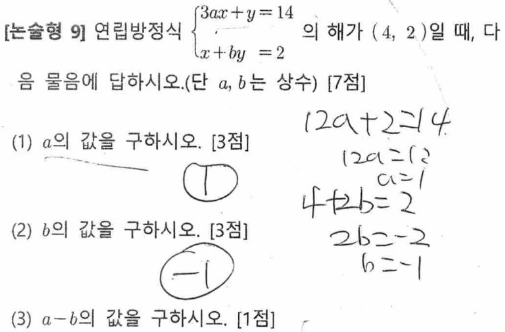 [논술형 9] 연립방정식 { 3ax+y=14 x+by =2 의 해가 (4, 2)일 때, 다
음 물음에 답하시오.(단 a, b는 상수) [7점]
(1) a의 값을 구하시오. [3점]
1
12a+2=14
12a=12
a=1
(2) b의 값을 구하시오. [3점]
-1
4+2b=2
2b=-2
b=-1
(3) a-b의 값을 구하시오. [1점]